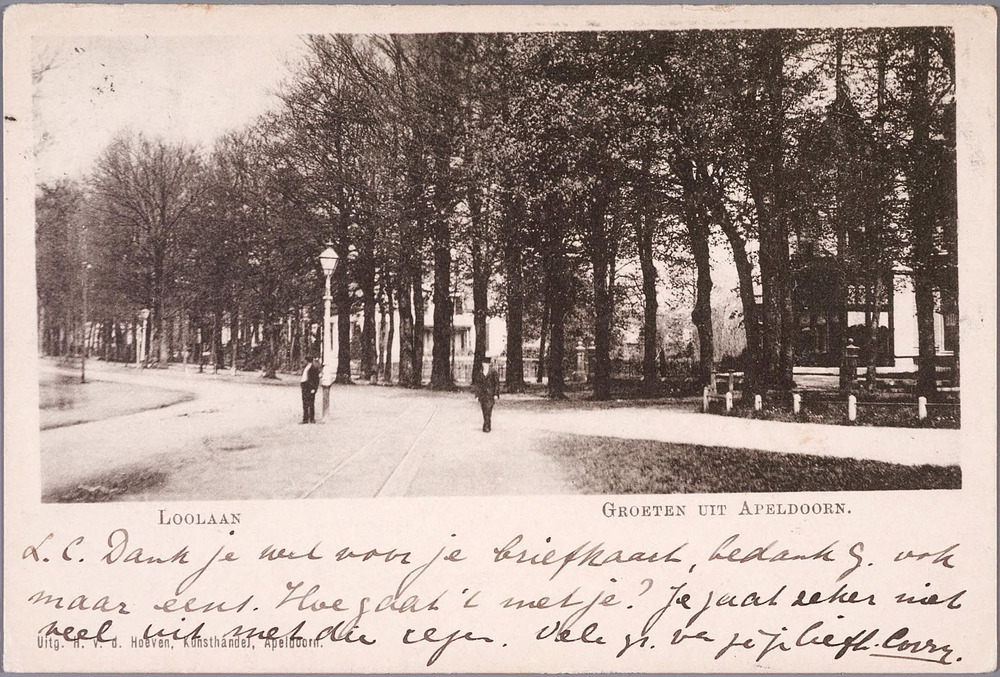 LOOLAAN
GROETEN UIT APELDOORN.
L. C. Dank je wel voor je briefkaart, bedank G. ook
maar eens. Hoe gaat 't met je? Je gaat zeker niet
veel uit met die regen. Vele gr. van je je liefh. Corry.
Uitg. H. v. d. Hoeven, Kunsthandel, Apeldoorn.